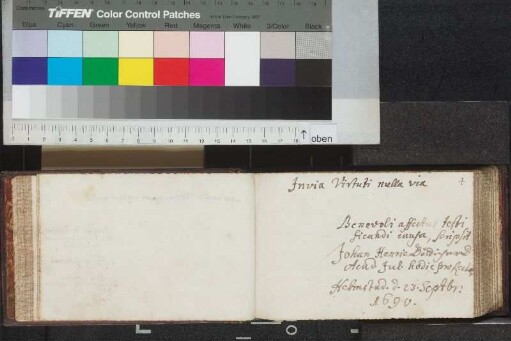 TIFFEN Color Control Patches
Blue Cyan Green Yellow Red Magenta White 3/Color Black
oben
Invia Virtuti nulla via
Benevoli affectus testi
ficandi causa, scripsit
Johan Henric
Acad Jul. hodie
Helmstad. d. 23. Septbr:
1690.